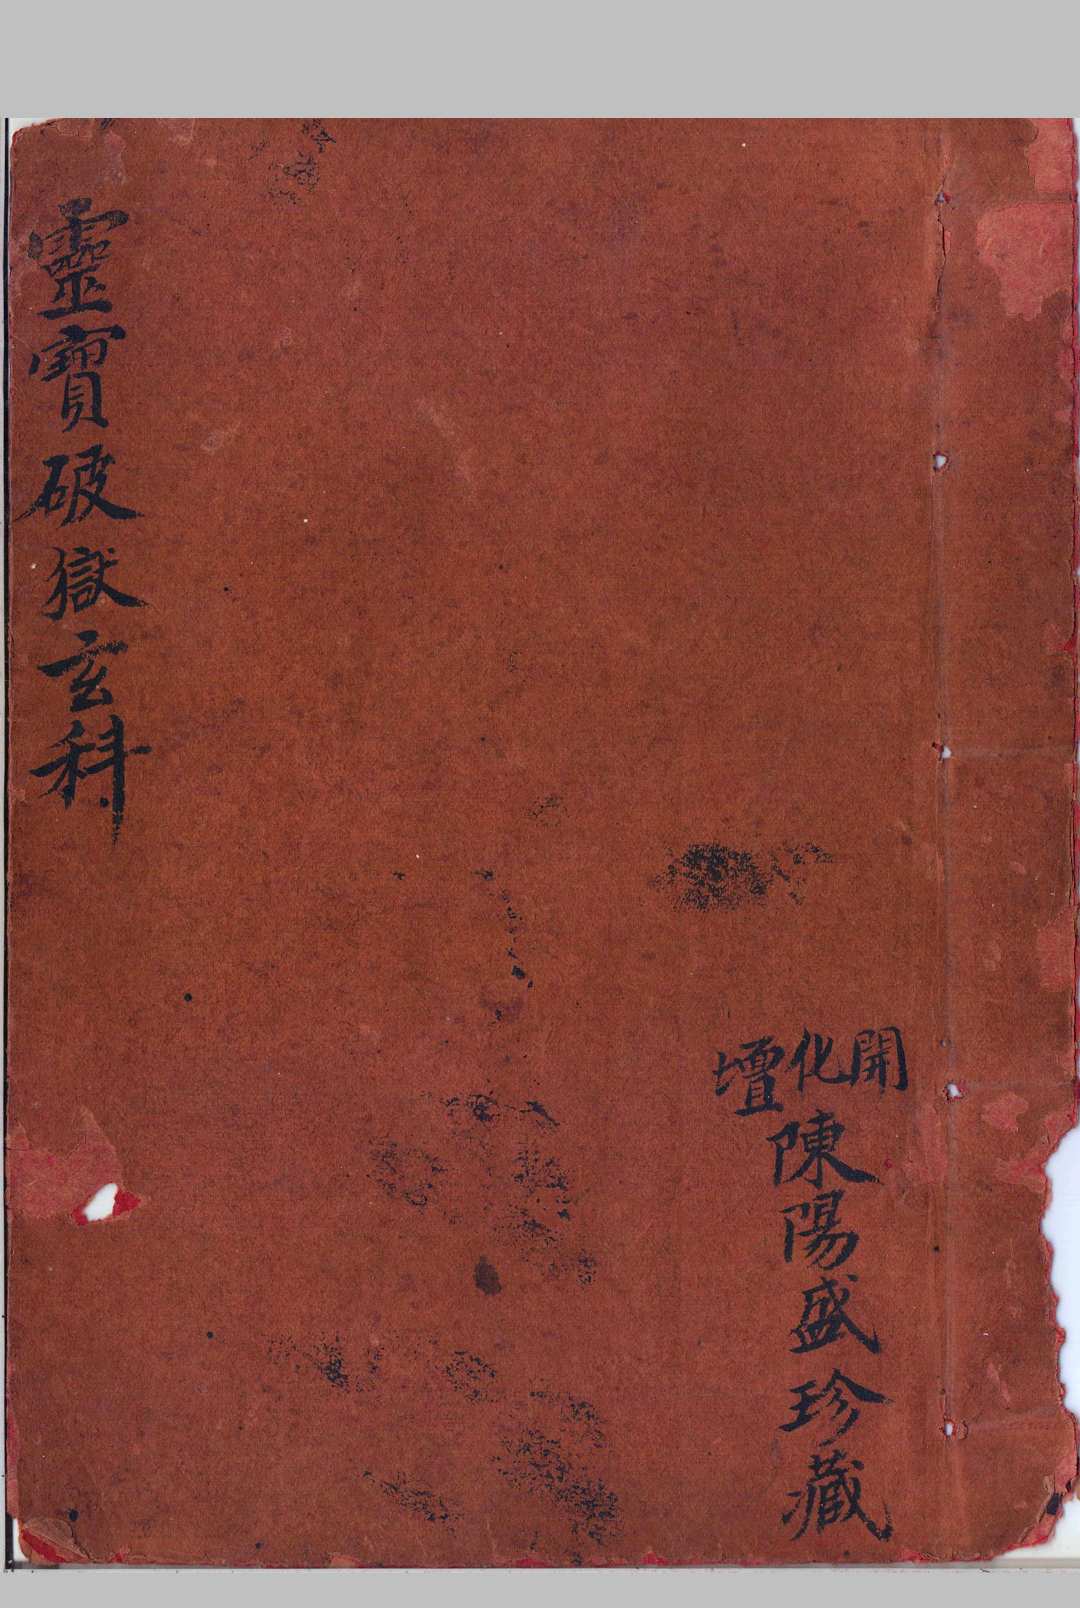 靈寶破獄玄科
開化壇
陳陽盛珍藏